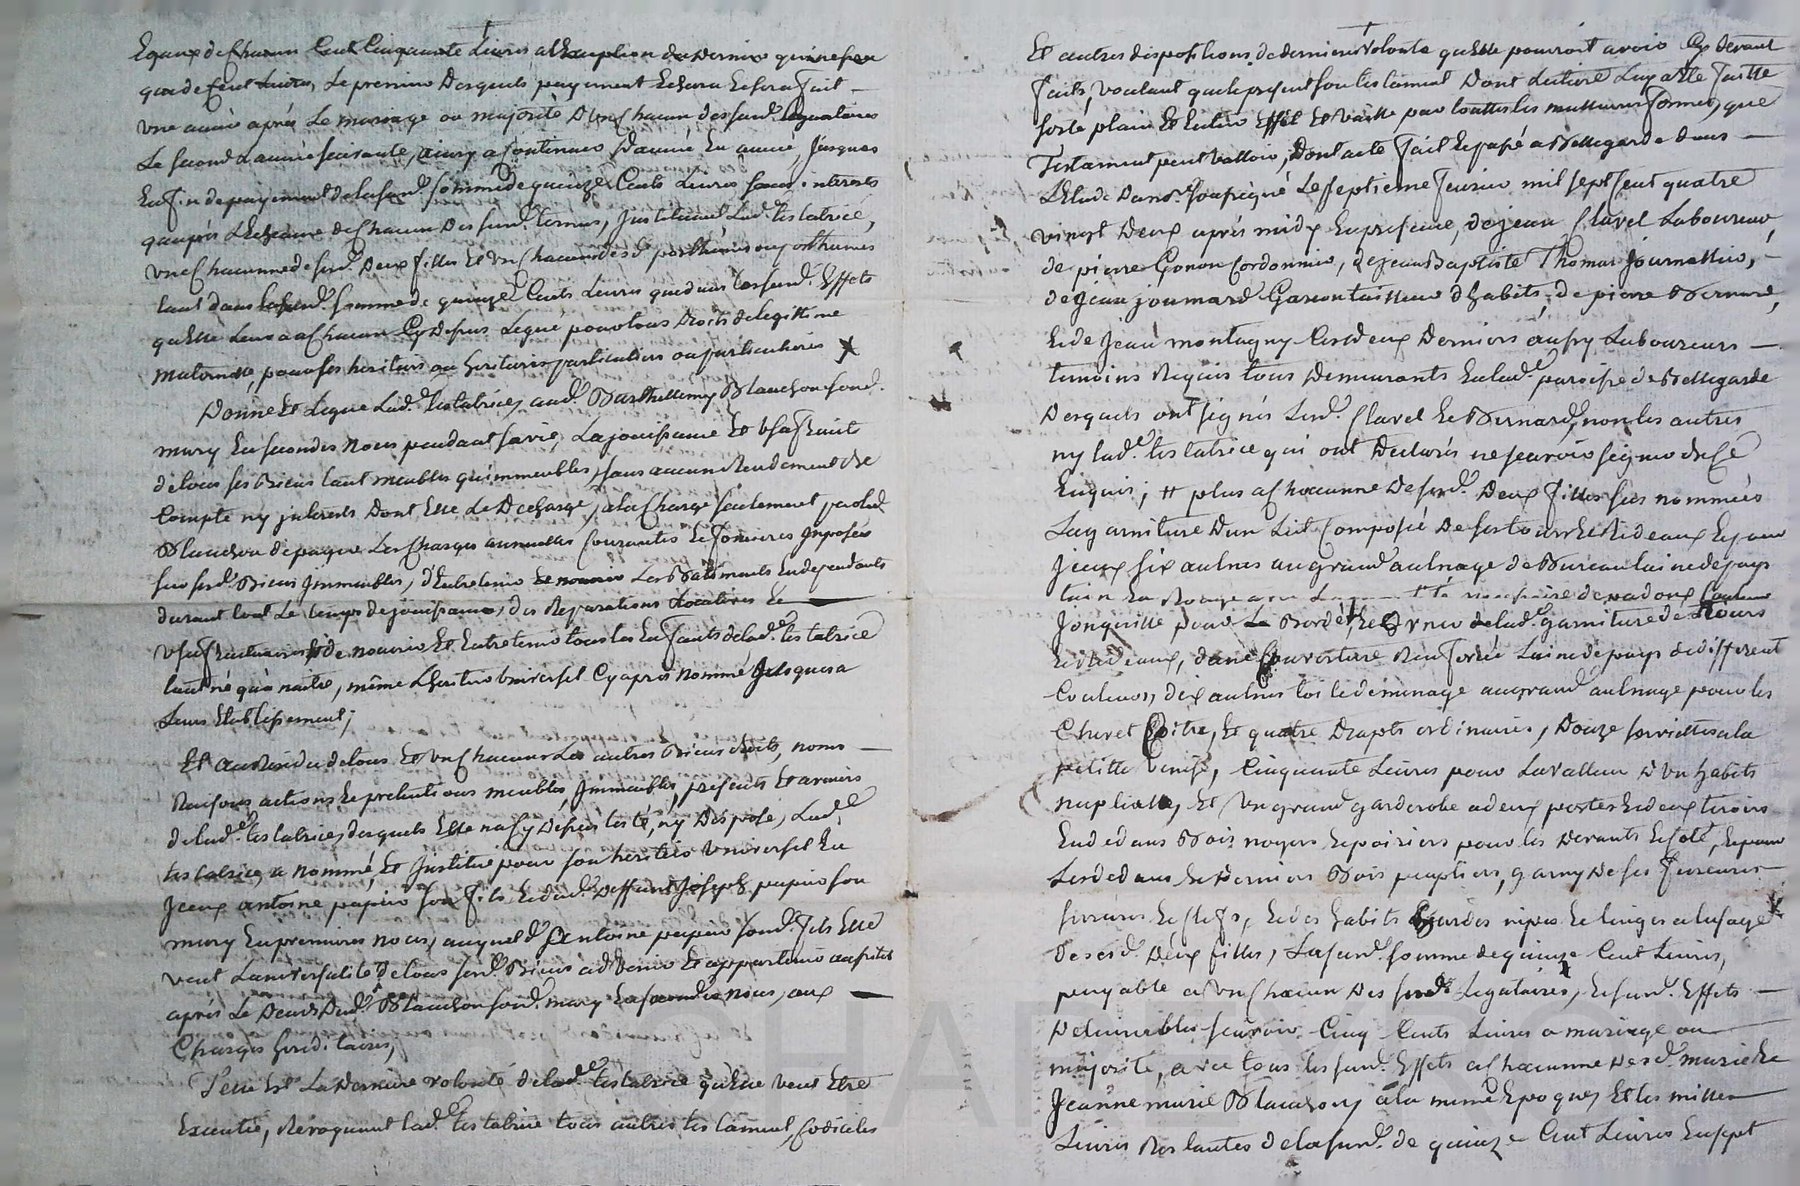 Egaux de Chacun Cent Cinquante Livres a l'Exception du Dernier qui ne sera
que de Cent Livres, Le premier Desquels payement Echera Et sera fait —
une année après Le mariage ou majorité D'un Chacun des surd. Legataires
Le second L'année suivante, ainsy a Continuer D'année En année, Jusques
En fin de payement de la surd.e somme de quinze Cents Livres sans interets
qu'après L'Echeance de Chacun Des surd. termes, Instituant Lad.e testatrice,
une Chacune de sesd. Deux filles Et un Chacun desd. posthumes ou posthumes
tant dans la surd.e somme de quinze Cents Livres que dans les surd. Effets
qu'Elle leur a a Chacun Cy Dessus Legué pour tous Droits de legitime
maternelle, pour ses heritiers ou heritieres particuliers ou particulieres
Donne Et Legue Lad.e testatrice, aud. Barthellemy Blanchon sond.
mary En secondes Noces pendant sa vie, La jouissance Et usufruit
de tous ses Biens tant meubles qu'immeubles, sans aucun Rendement De
Compte ny jnterets Dont Elle Le Decharge, a la Charge seulement par led.
Blanchon de payer Les Charges annuelles Courantes Et foncieres Imposées
sur sesd. Biens Immeubles, d'Entretenir Les Batiments En dependants
durant tout Le temps de jouissance, des Reparations Locatives Et
usufructuaires, de nourrir Et Entretenir tous les Enfants de lad.e testatrice
tant né qu'a naitre, même L'heritier Universel Cy après nommé Jusques a
Leurs Etablissement;
Et au Residu de tous Et un Chacun Les autres Biens droits, noms —
Raisons actions Et pretentions meubles, Immeubles, presents Et avenirs
de lad.e testatrice, desquels Elle na Cy Dessus testé, ny Disposé, Lad.e
testatrice, a nommé, Et Institue pour son heritier Universel En
Jceux antoine papier son fils Et dud. Deffunt Joseph papier son
mary En premieres noces, auquel d. antoine papier sond. fils Elle
veut L'universalité De tous sesd. Biens advenir Et appartenir aussitot
après Le Deces Dud. Blanchon sond. mary En secondes noces, aux —
Charges hereditaires,
Telle Est La Derniere volonté de lad.e testatrice qu'Elle veut Etre
Executée, Revoquant lad.e testatrice tous autres testament, Codiciles
Et autres dispositions de derniere volonté qu'Elle pourroit avoir Cy Devant
faits, voulant que le present son testament Dont Lecture Luy a Eté faitte
sorte plain Et Entier Effet Et vaille par touttes les meilleures formes, que
Testament peut valloir, Dont acte fait Et passé a Bellegarde dans —
L'Etude Du no.re soussigné Le septieme fevrier mil sept Cent quatre
vingt Deux après midy En presence, de jean Clavel Laboureur,
de pierre Gonon Cordonnier, de Jean Baptiste Thomas Journallier, —
de Jean joumard Garcon tailleur d'habits, de pierre Bernard,
Et de Jean montagny Les deux Derniers aussy Laboureurs —
temoins Requis tous Demeurants En lad.e paroisse de Bellegarde
Desquels ont signés Lesd. Clavel Et Bernard, non les autres
ny lad.e testatrice qui ont Declarés ne scavoir signer de Ce
Enquis; # plus a Chacune De sesd. Deux filles sus nommées
La garniture D'un Lit Composée De ses tours Et Rideaux Et pour
Jceux six aulnes au grand aulnage de Bureau laine de pays
Jonquille pour Le Border, Et orner de lad.e garniture de tours
Et Rideaux, d'une Couverture Renforcée Laine de pays de different
Couleurs, dix aulnes toile de menage au grand aulnage pour les
Chevet Coitre, Et quatre Draps ordinaires, Douze serviettes a la
petitte Venise, Cinquante Livres pour La valleur D'un habits
nuptialle, Et Un grand garderobe a deux portes Et deux tiroirs
En dedans Bois noyers Et poiriers pour les Devants Et Coté, Et pour
Les dedans Et Derniers Bois peupliers, garny De ses ferrures
serrures Et Clefs, Et des habits hardes nipes Et linges a lusage
De sesd. Deux filles, La surd.e somme de quinze Cent Livres,
payable a un Chacun Des surd. Legataires, Et surd. Effets —
Delivrables scavoir Cinq Cents Livres a mariage ou
majorité, avec tous les surd. Effets a Chacune Desd. marie Et
Jeanne marie Blanchon, a la même Epoque, Et les mille
Livres Restantes de la surd.e de quinze Cent Livres En sept